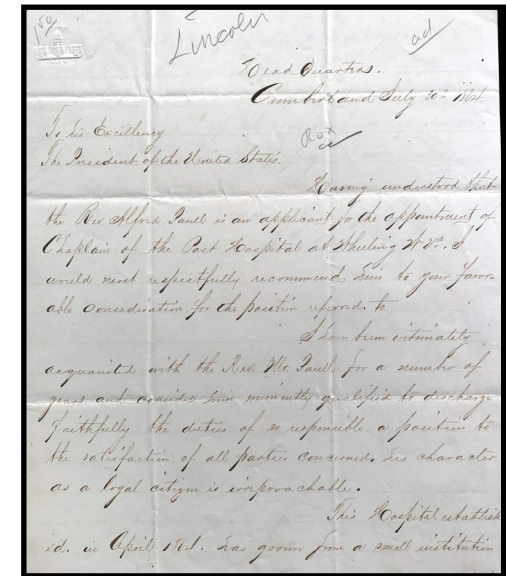 Lincoln
ad
Head Quarters.
Cumberland July 30th 1864.
To his Excellency
The President of the United States.
Having understood that
the Rev. Alfred Paull is an applicant for the appointment of
Chaplain of the Post Hospital at Wheeling W. Va. I
would most respectfully recommend him to your favor-
able consideration for the position referred to
I have been intimately
acquainted with the Rev. Mr. Paull for a number of
years and consider him eminently qualified to discharge
faithfully the duties of so responsible a position to
the satisfaction of all parties concerned. his character
as a loyal citizen is irreproachable.
This Hospital establish
ed. in April 1861. has grown from a small institution